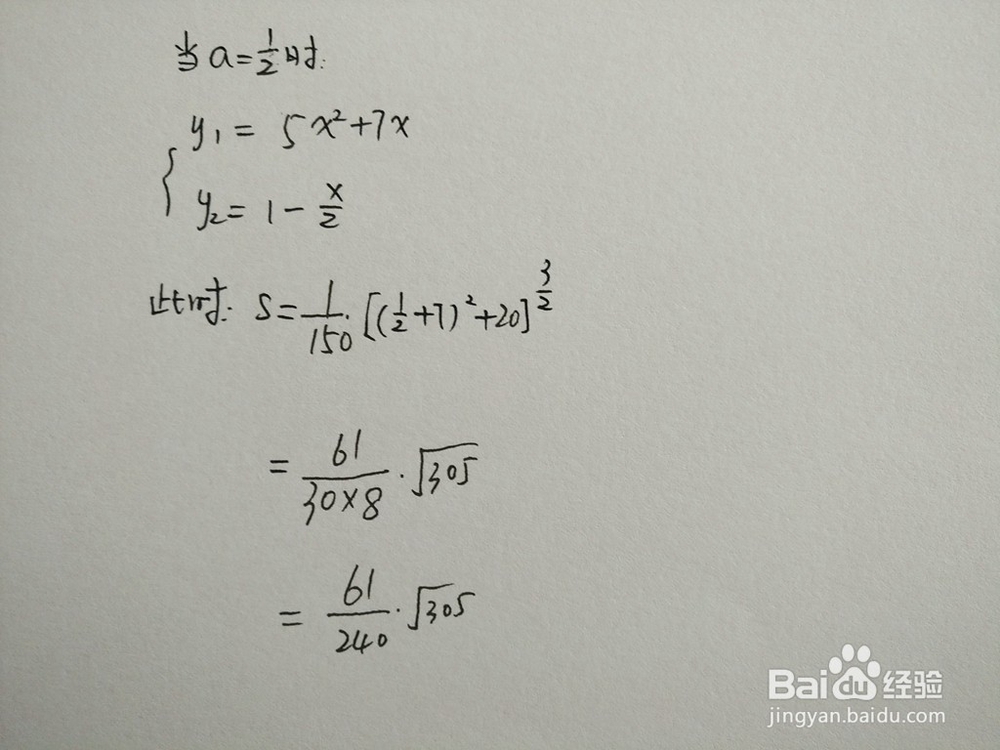 当 a=1/2时:
y₁ = 5x²+7x
y₂= 1 - x/2
此时: S=1/150·[(1/2+7)²+20]^(3/2)
= 61/(30×8) ·√305
= 61/240 ·√305
Baidu 经验
jingyan.baidu.com